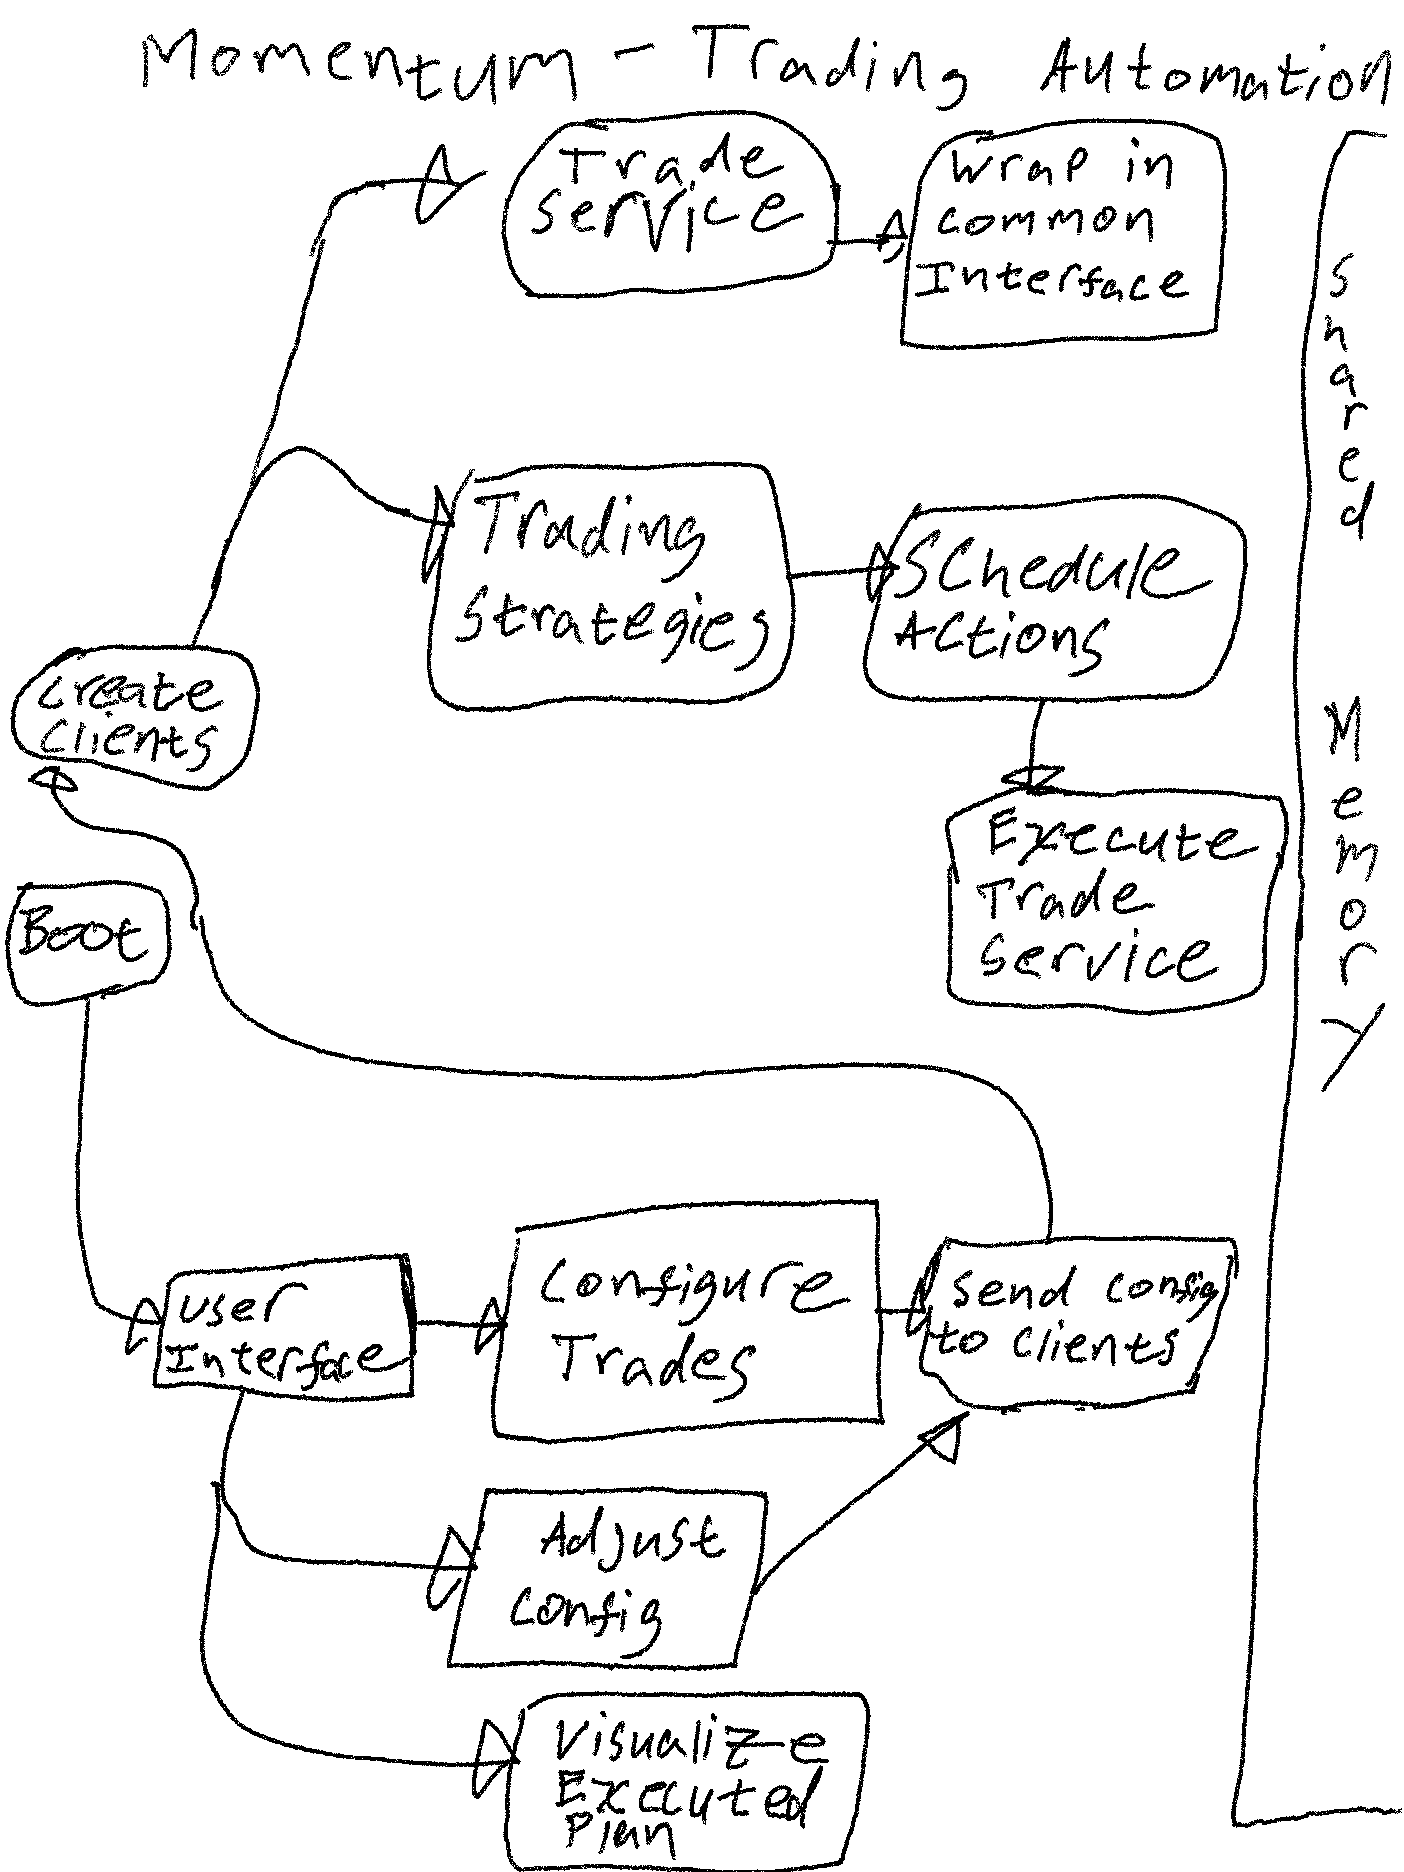 Momentum - Trading Automation
Trade
Service
Wrap in
Common
Interface
Trading
Strategies
Schedule
Actions
Create
Clients
Execute
Trade
Service
Boot
User
Interface
Configure
Trades
Send Config
to Clients
Adjust
Config
Visualize
Executed
Plan
Shared
Memory